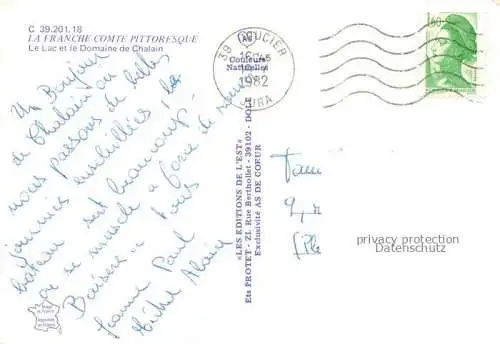 C 39.201.18
LA FRANCHE COMTE PITTORESQUE
Le Lac et le Domaine de Chalain
Un Bonjour
de Chalain où
nous passons de belles
journées ensoleillées, le
bateau sert beaucoup,
on se muscle à force de ramer
Baisers à tous
Jeanne Paul
Michel Alain
Couleurs
Naturelles
39 DOUCIER
1982
JURA
«LES EDITIONS DE L'EST»
Ets PROTET - ZI. Rue Berthollet - 39102 - DOLE
Exclusivité AS DE COEUR
1,60
privacy protection
Datenschutz